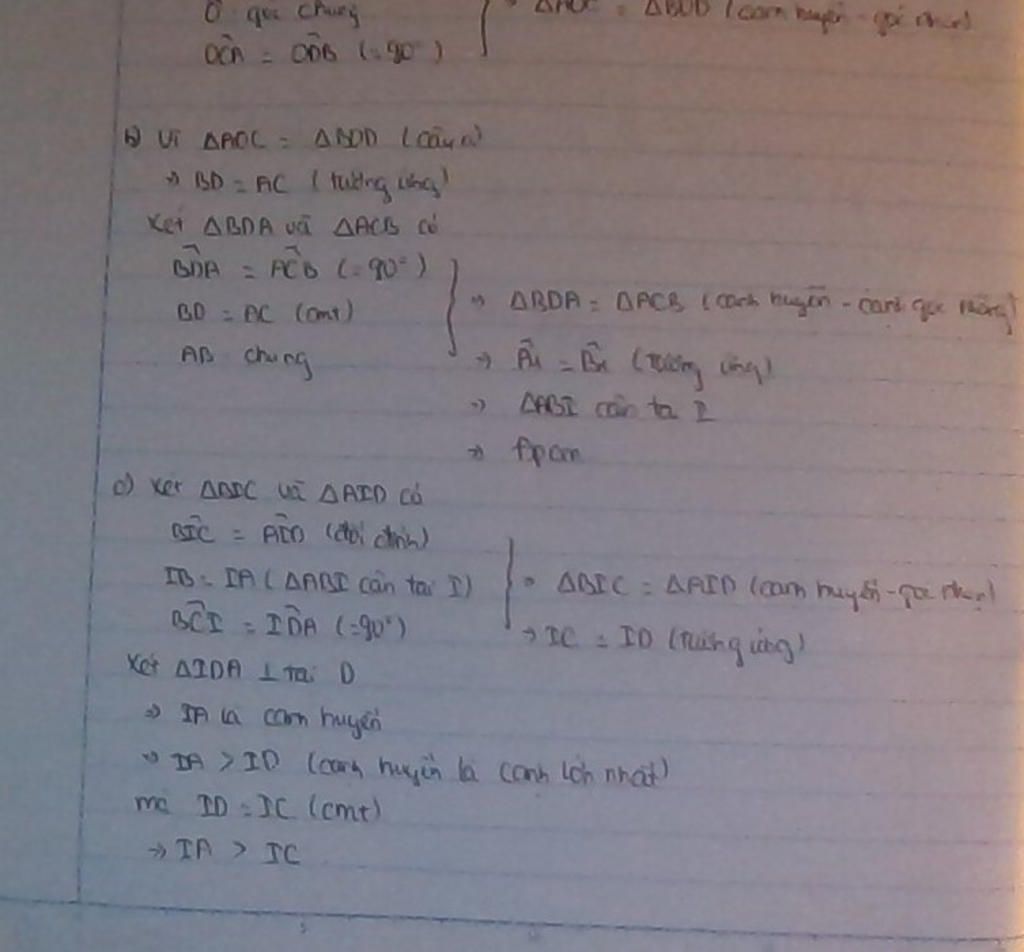 Ô góc chung
OĈA = OD̂B (=90°)
⇒ ΔAOC = ΔBOD (cạnh huyền - góc nhọn)
b) Vì ΔAOC = ΔBOD (câu a)
⇒ BD = AC (tương ứng)
Xét ΔBDA và ΔACB có
BD̂A = AĈB (=90°)
BD = AC (cmt)
AB chung
⇒ ΔBDA = ΔACB (cạnh huyền - cạnh góc vuông)
⇒ Â₁ = B̂₁ (tương ứng)
⇒ ΔABI cân tại I
⇒ đpcm
c) Xét ΔBIC và ΔAID có
BÎC = AÎD (đối đỉnh)
IB = IA (ΔABI cân tại I)
BĈI = ID̂A (=90°)
⇒ ΔBIC = ΔAID (cạnh huyền - góc nhọn)
⇒ IC = ID (tương ứng)
Xét ΔIDA ⊥ tại D
⇒ IA là cạnh huyền
⇒ IA > ID (cạnh huyền là cạnh lớn nhất)
mà ID = IC (cmt)
⇒ IA > IC